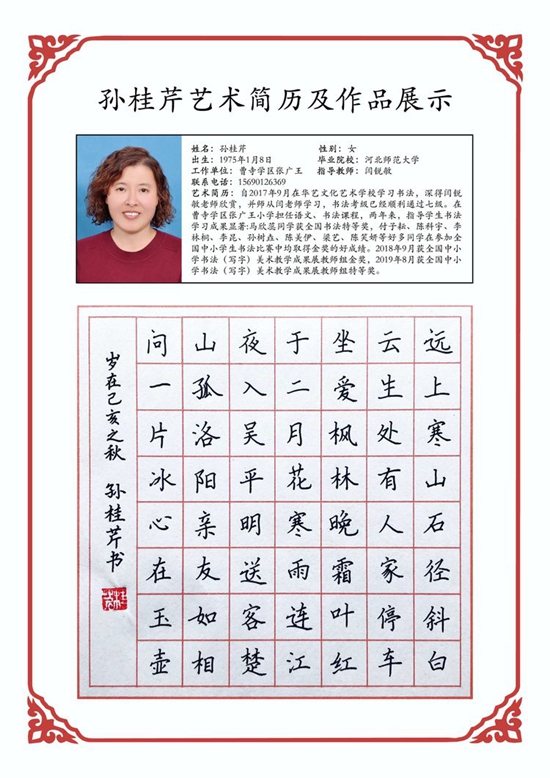 孙桂芹艺术简历及作品展示
姓名：孙桂芹 性别：女
出生：1975年1月8日 毕业院校：河北师范大学
工作单位：曹寺学区张广王 指导教师：闫锐敏
联系电话：15690126369
艺术简历：自2017年9月在华艺文化艺术学校学习书法，深得闫锐
敏老师欣赏，并师从闫老师学习，书法考级已经顺利通过七级。在
曹寺学区张广王小学担任语文、书法课程，两年来，指导学生书法
学习成果显著:马欣蕊同学获全国书法特等奖，付子耘、陈科宇、李
林桐、李昆、孙树垚、陈美伊、梁艺、陈笑妍等好多同学在参加全
国中小学生书法比赛中均取得金奖的好成绩。2018年9月获全国中小
学书法（写字）美术教学成果展教师组金奖，2019年8月获全国中小
学书法（写字）美术教学成果展教师组特等奖。
远上寒山石径斜白
云生处有人家停车
坐爱枫林晚霜叶红
于二月花寒雨连江
夜入吴平明送客楚
山孤洛阳亲友如相
问一片冰心在玉壶
岁在己亥之秋 孙桂芹书